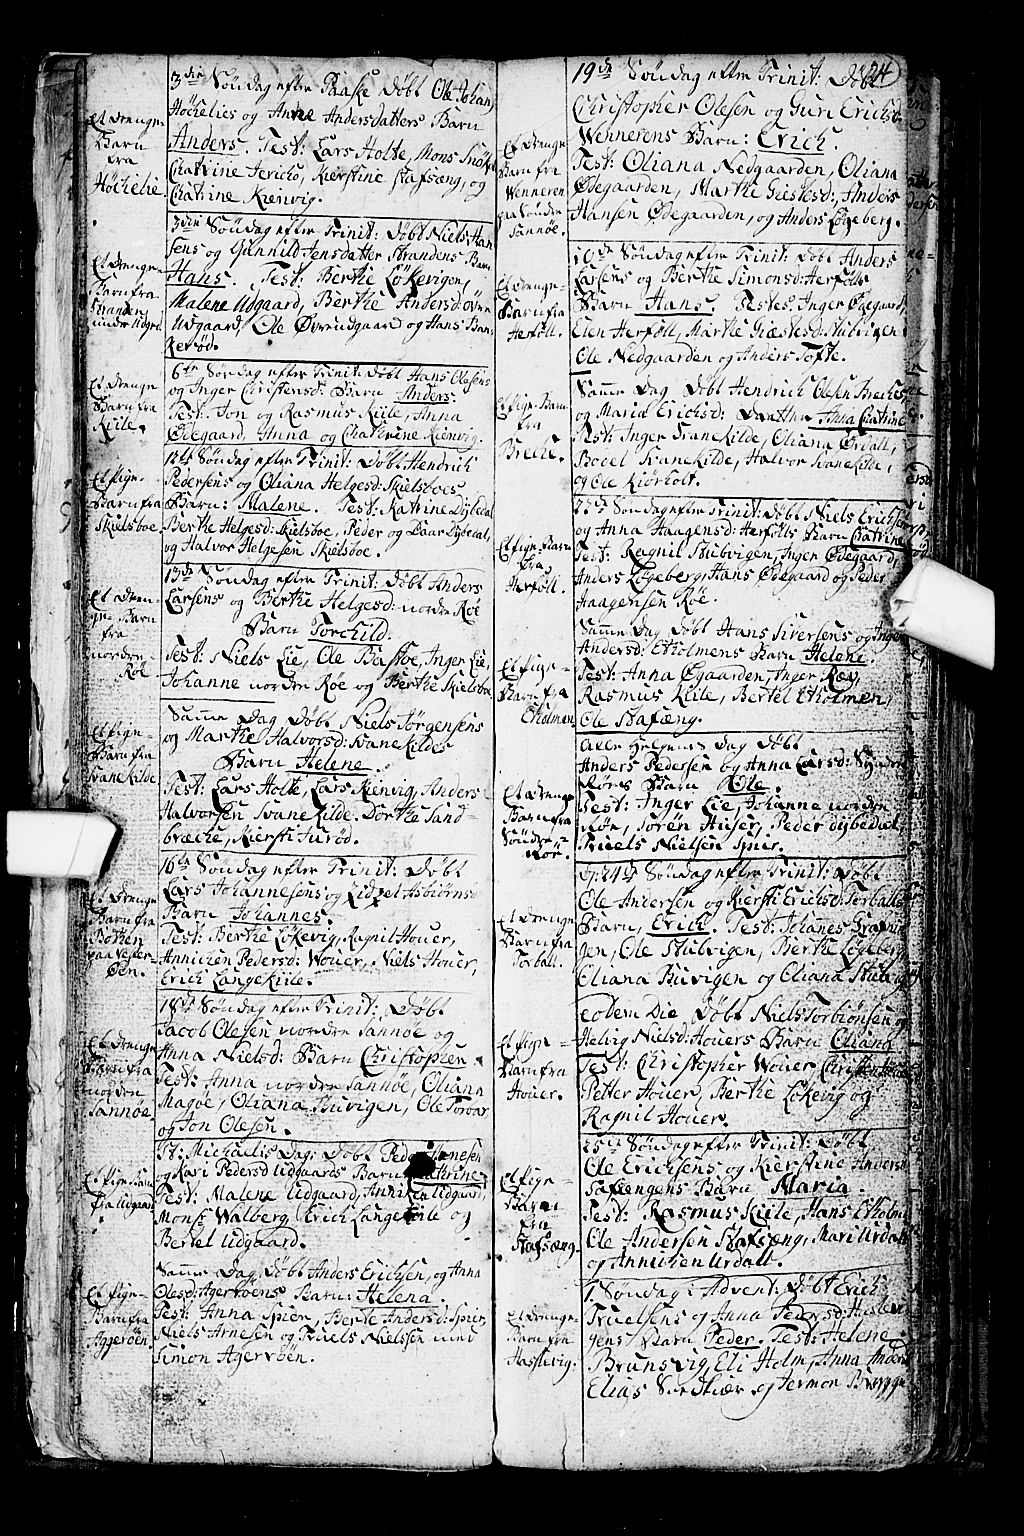 3die Søndag efter Paaske døbt Ole Johan
Høchelies og Anne Andersdatters Barn
Anders. Test: Lars Holte, Mons
Chatrine Jericho, Kierstine Stafsæng, og
Chatrine Kienvig.
Et Drenge-
Barn
fra
Høchelie.
3die Søndag efter Trinit: Døbt Niels Han
sens og Gunnild Jensdatter Strandens Barn
Hans. Test: Berthe Løkevigen,
Malene Udgaard, Berthe Andersd: øvre
Udgaard, Ole Øvreudgaard og Hans Ban-
kerød.
Et Drenge-
Barn fra
Stranden
under Udgrd
6te Søndag efter Trinit: Døbt Hans Olesens
og Inger Christensd: Barn Anders.
Test: Jon og Rasmus Kiile, Anna
Ødegaard, Anna og Chathrine Kienvig.
Et Drenge
Barn fra
Kiile.
Søndag efter Trinit: Døbt Hendrich
Pedersens og Oliana Helgesd: Skielsboes
Barn: Malene. Test: Katrine Dybedal
Berthe Helgesd: Skielsboe, Peder og Daar Dybedal,
og Halvor Helgesen Skielsboe.
Et Pige-
Barn fra
Skielsboe
13de Søndag efter Trinit: Døbt Anders
Larsens og Berthe Helgesd: nordre Røe
Barn Torchild.
Test: Niels Lie, Ole Berstøe, Inger Lie,
Johanne nordre Røe og Berthe Skielsboe
Et Dren-
ge-Barn
fra
nordre-
Røe
Samme Dag Døbt Niels Jørgensens
og Marthe Halvorsd: Svanekildes
Barn Helene.
Test: Lars Holte, Lars Kienvig, Anders
Halvorsen Svanekilde. Dorthe Sand-
bræche, Kiersti Surød.
Et Pige-
Barn fra
Svanekilde
16de Søndag efter Trinit: Døbt
Lars Johannesens og Zidzel Asbiørnsd
Barn Johannes.
Test: Berthe Løkevig, Ragnil Houer,
Annichen Pedersd: Wouer, Niels Houer,
Erich Langekiile.
Et Drenge
Barn fra
Botten
paa Vester-
øen.
18de Søndag efter Trinit: Døbt
Jacob Olesen nordre Sannøe og
Anna Nielsd: Barn Christopher
Test: Anna nordre Sannøe, Oliana
Magøe, Oliana Buvigen, Ole Torvar
og Jon Olesen.
Et Drenge
Barn fra
nordre
Sannøe
St: Michaelis Dag: Døbt Peder Hansen
og Kari Pedersd Udgaards Barn Cathrine
Test: Malene Udgaard, Anniken Udgaard,
Mons Walberg, Erich Langekiile og
Bertel Udgaard.
Et Pige-Barn
fra Udgaard
Samme Dag, Døbt Anders Erichsen, og Anna
Olesd: Agerøens Barn: Helena.
Test: Anna Spier, Berthe Andersd: Spier,
Niels Arnesen og Truels Nielssen
Simon Agerøen.
Et Pige-
Barn fra
Aggerøen.
24
19de Søndag efter Trinit: Døbt
Christopher Olesen og Guri Erichsd
Wennerens Barn: Erich.
Test: Oliana Nedgaarden, Oliana
Ødegaarden, Marthe Giestesd: Anders
Hansen Ødegaarden, og Anders Løgeberg.
Et Drenge
Barn fra
Wenneren
paa Søndre
Sannøe.
20de Søndag efter Trinit: Døbt Anders
Larsens og Berthe Simonsd: Herføls
Barn Hans. Testes: Inger Ødegaard,
Elen Herføll, Marthe Giestesd: Stubvigen
Ole Nedgaarden og Anders Tofte.
Et Drenge-
Barn fra
Herføll.
Samme Dag Døbt Hendrich Olesen Breches
og Maria Erichsd: Daatter Anna Chatrine
Test: Inger Svanekilde, Oliana Ordalt,
Bodel Svanekilde, Halvor Svanekilde,
og Ole Kiørholt.
Et Pige-Barn
fra
Breche.
Søndag efter Trinit: Døbt Niels Erichsens
og Anna Haagensd: Herføls Barn Chatrine
Test: Ragnil Stubvigen, Inger Ødegaard,
Anders Løgeberg, Hans Ødegaard og Peder
Haagensen Røe.
Et Pige-Barn
fra
Herføll.
Samme Dag Døbt Hans Siversens og Inger
Andersd: Etholmens Barn Helene.
Test: Anna Øgaarden, Inger Røe,
Rasmus Kiile, Bertel Etholmen,
Ole Stafsæng.
Et Pige-
Barn fra
Etholmen
Aller Helgenes Dag Døbt
Anders Pedersen og Anna Larsd: Søndre
Røes Barn Ole.
Test: Inger Lie, Johanne nordre
Røe, Søren Huser, Peder Dybedal,
Truels Nielsen Spier.
Et Drenge
Barn fra
Søndre-
Røe.
D: 24de Søndag efter Trinit: Døbt
Ole Andersen og Kiersti Erichsd: Torbalts
Barn, Erich. Test: Johanes
gen, Ole Stubvigen, Berthe Løgeberg
Oliana Buvigen og Oliana Stubvig
Et Drenge
Barn fra
Torbalt.
eodem Die Døbt Niels Torbiønsen og
Helvig Nielsd: Houers Barn Oliana
Test: Christopher Wouer, Christen
Petter Houer, Berthe Løkevig og
Ragnil Houer.
Et Pige-
Barn fra
Houer.
25de Søndag efter Trinit: Døbt
Ole Erichsens og Kierstine Andersd
Safsengens Barn Maria.
Test: Rasmus Kiile, Hans Etholm
Ole Andersen Stafsæng, Mari Urdalt
og Annichen Urdalt.
Et Pige-
Barn
fra
Stafsæng.
1. Søndag i Advent: Døbt Erich
Truelsens og Anna Pedersd: Haslevi
gens Barn Peder. Test: Helene
Brunsvig, Eli Holm, Anna Andersd
Elias Sandkiær og Jermon Brygge
Et Drenge-
Barn fra
Haslevig.